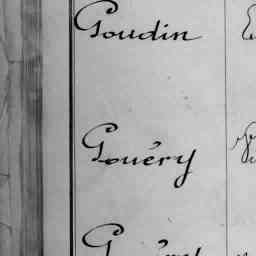 Goudin
Gouéry